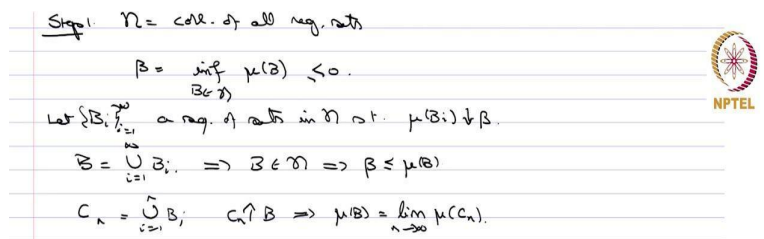 Step 1. 𝒩 = coll. of all neg. sets
β = inf μ(B) ≤ 0.
B∈𝒩
Let {B_i}_{i=1}^∞ a seq. of sets in 𝒩 s.t. μ(B_i) ↓ β.
B = ⋃_{i=1}^∞ B_i. ⇒ B ∈ 𝒩 ⇒ β ≤ μ(B)
C_n = ⋃_{i=1}^n B_i C_n ↑ B ⇒ μ(B) = lim_{n→∞} μ(C_n).
NPTEL